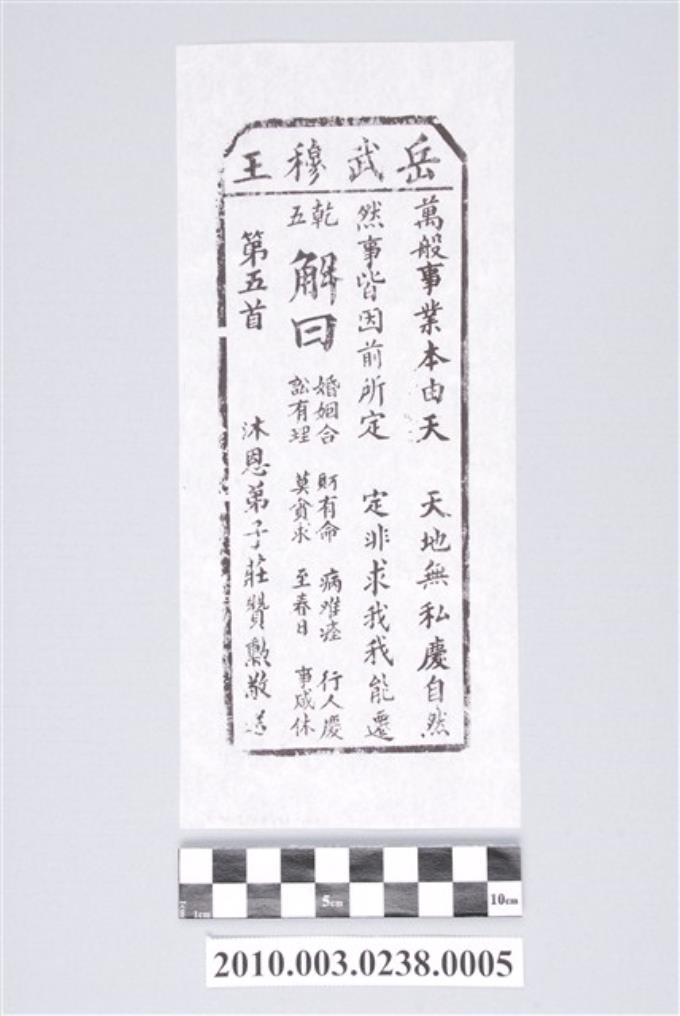 岳武穆王
萬般事業本由天 天地無私慶自然
然事皆因前所定 定非求我我能遷
乾五
解曰
婚姻合 財有命 病难痊 行人慶
訟有理 莫貪求 至春日 事成休
第五首 沐恩弟子莊贊勳敬送
1cm 1cm 5cm 10cm
2010.003.0238.0005